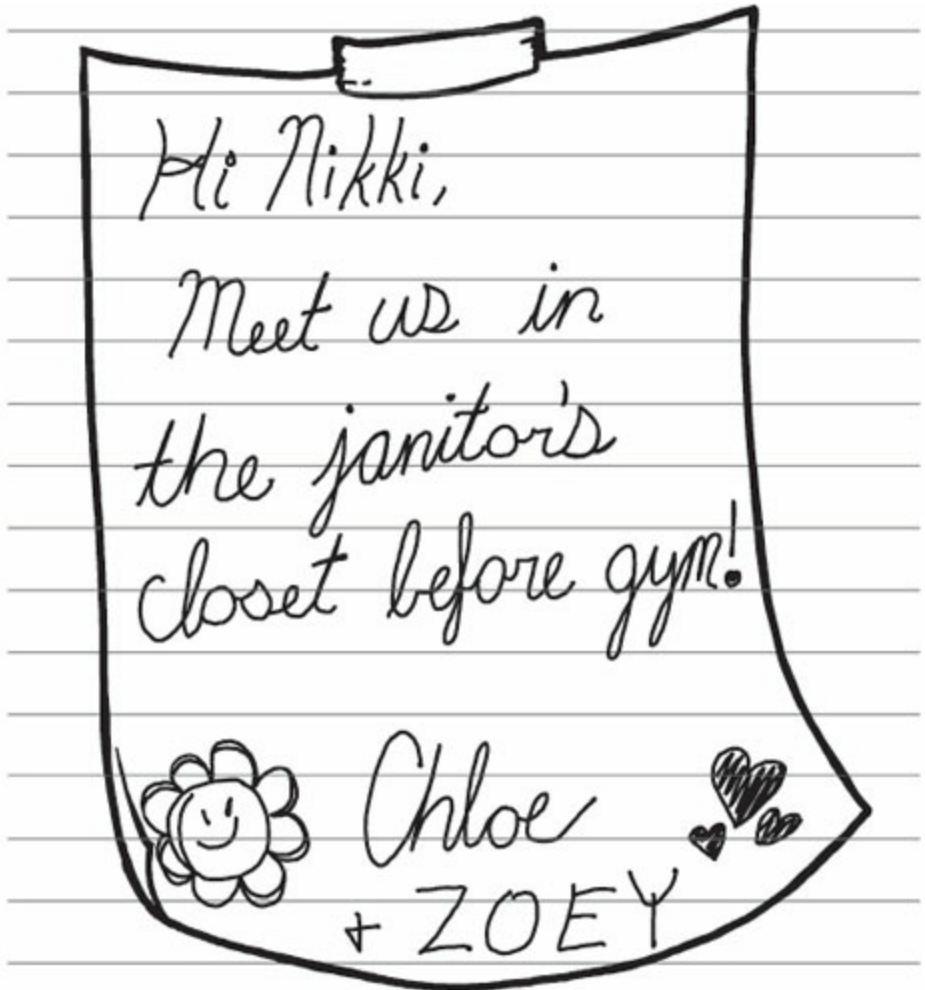 Hi Nikki,
Meet us in
the janitor's
closet before gym!
Chloe
+ ZOEY